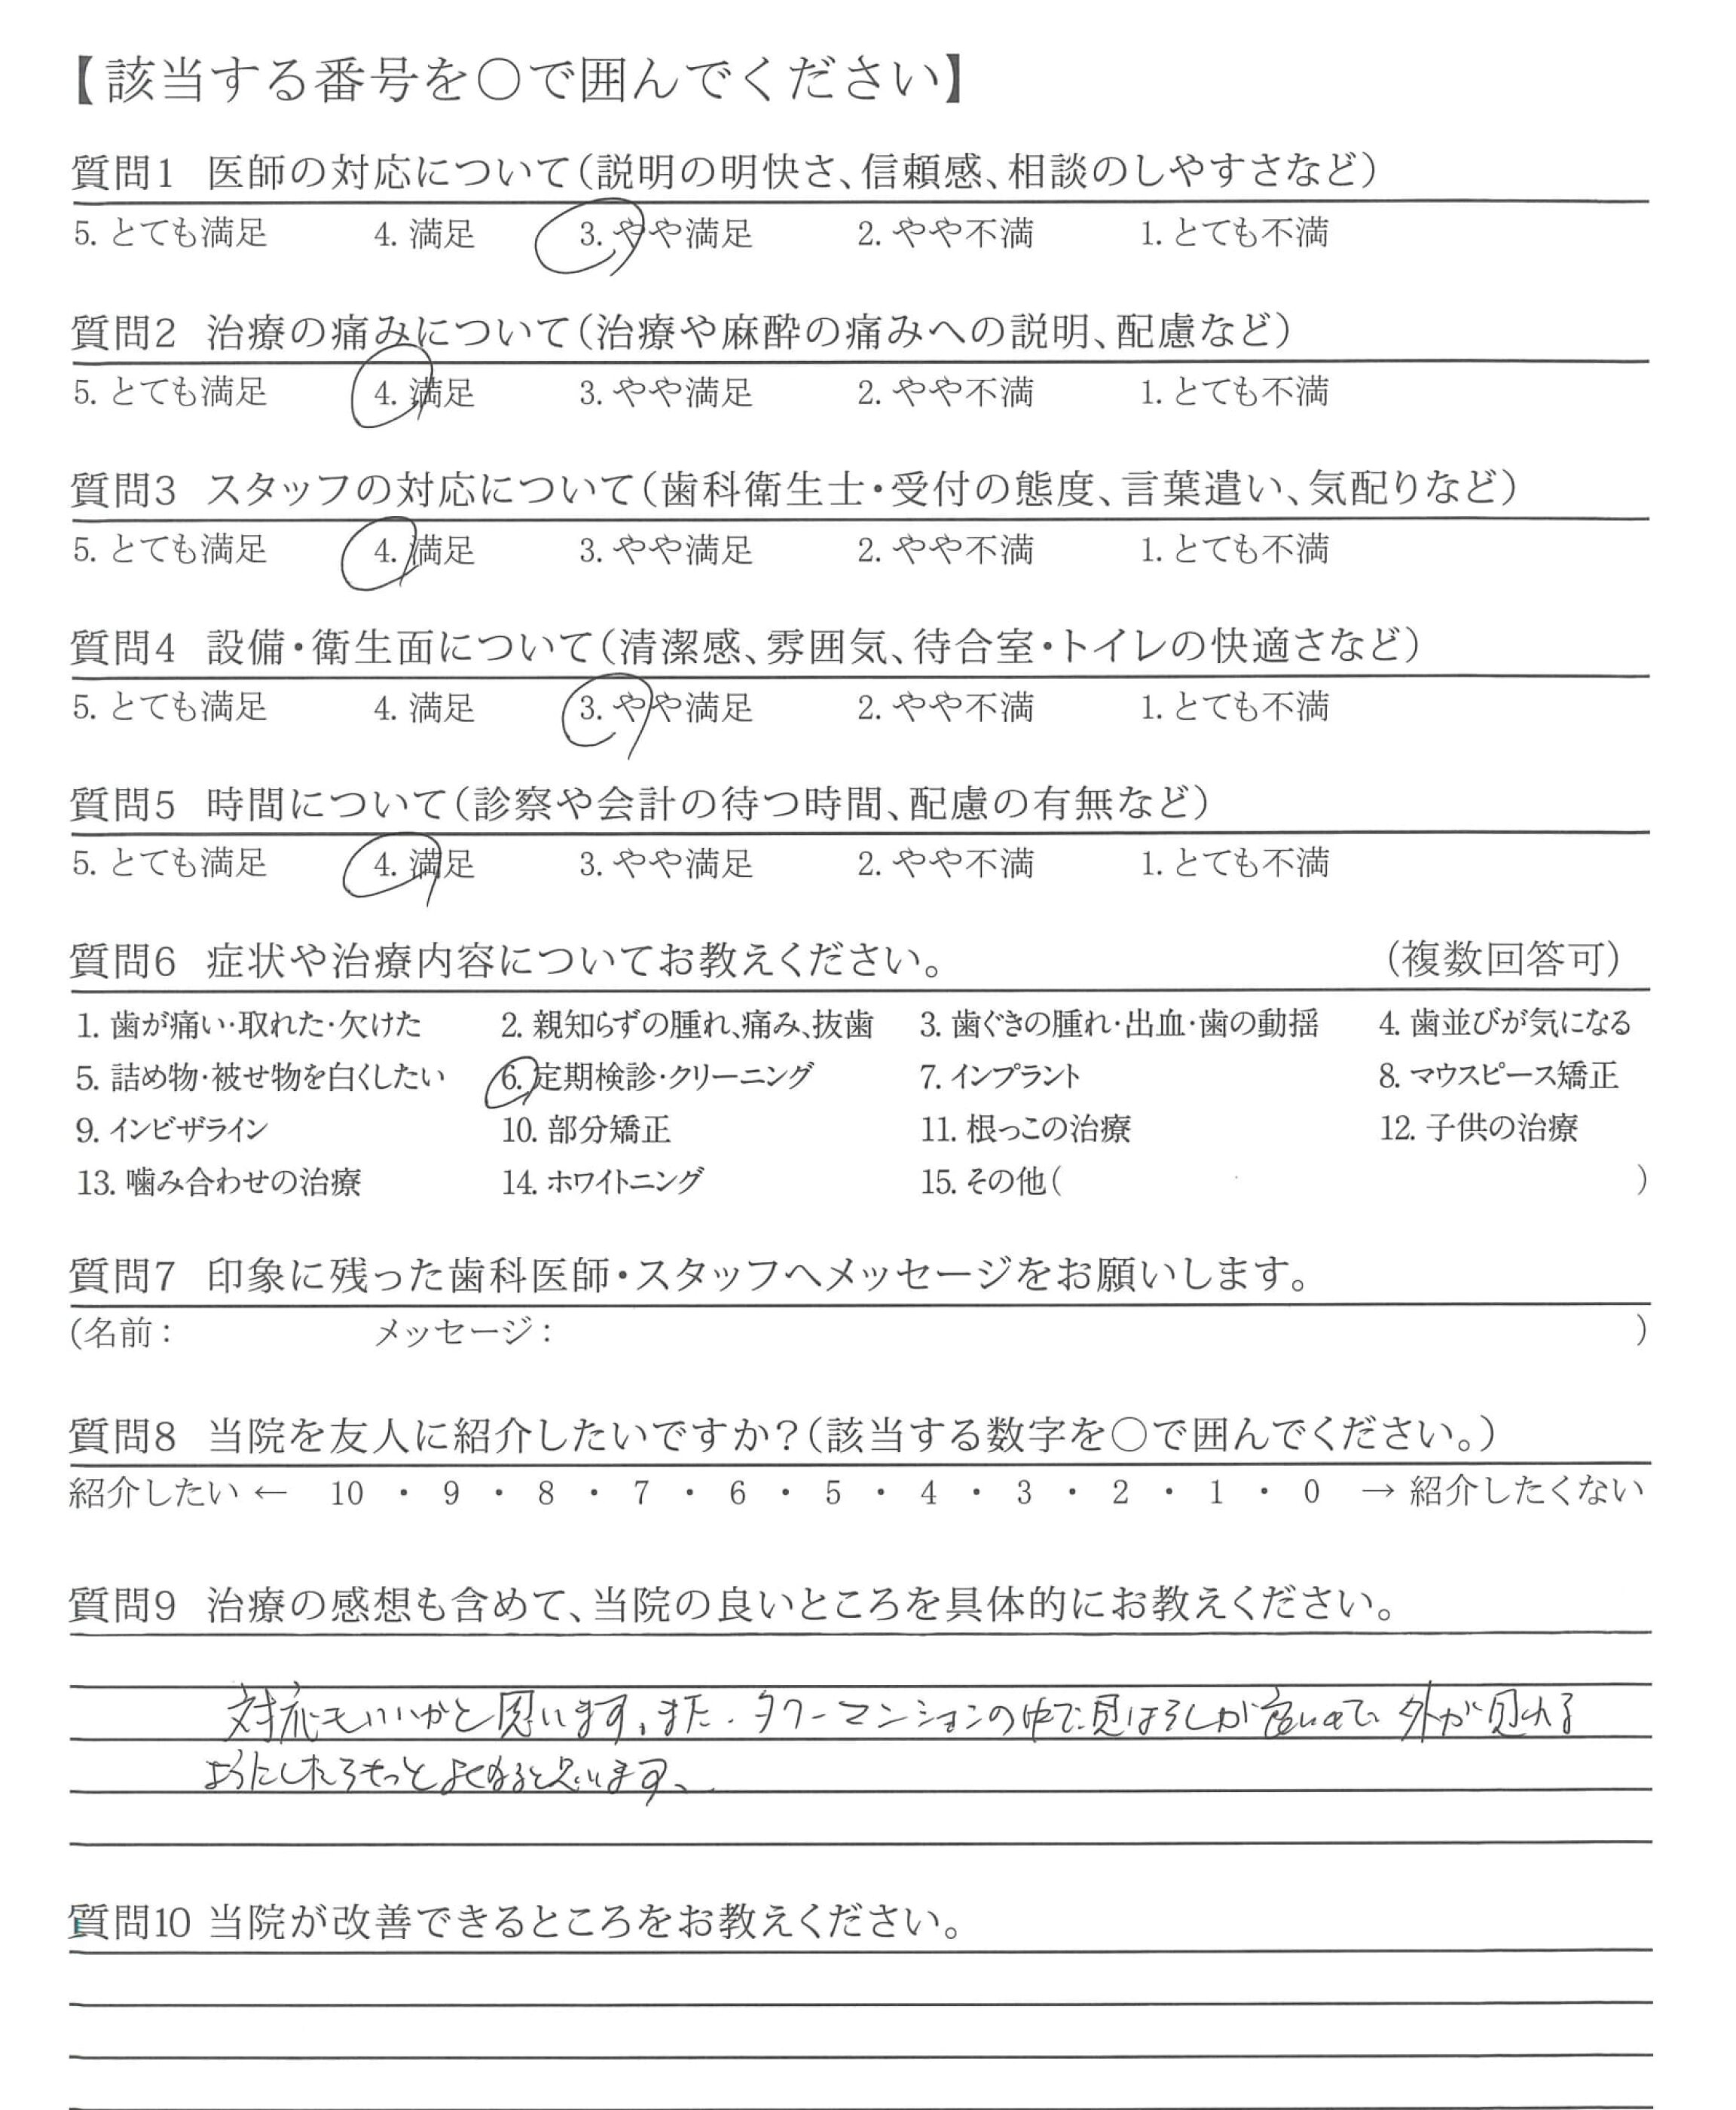 【該当する番号を○で囲んでください】
質問1 医師の対応について(説明の明快さ、信頼感、相談のしやすさなど)
5. とても満足 4. 満足 3. やや満足 2. やや不満 1. とても不満
質問2 治療の痛みについて(治療や麻酔の痛みへの説明、配慮など)
5. とても満足 4. 満足 3. やや満足 2. やや不満 1. とても不満
質問3 スタッフの対応について(歯科衛生士・受付の態度、言葉遣い、気配りなど)
5. とても満足 4. 満足 3. やや満足 2. やや不満 1. とても不満
質問4 設備・衛生面について(清潔感、雰囲気、待合室・トイレの快適さなど)
5. とても満足 4. 満足 3. やや満足 2. やや不満 1. とても不満
質問5 時間について(診察や会計の待つ時間、配慮の有無など)
5. とても満足 4. 満足 3. やや満足 2. やや不満 1. とても不満
質問6 症状や治療内容についてお教えください。 (複数回答可)
1. 歯が痛い・取れた・欠けた 2. 親知らずの腫れ、痛み、抜歯 3. 歯ぐきの腫れ・出血・歯の動揺 4. 歯並びが気になる
5. 詰め物・被せ物を白くしたい 6. 定期検診・クリーニング 7. インプラント 8. マウスピース矯正
9. インビザライン 10. 部分矯正 11. 根っこの治療 12. 子供の治療
13. 噛み合わせの治療 14. ホワイトニング 15. その他( )
質問7 印象に残った歯科医師・スタッフへメッセージをお願いします。
(名前: メッセージ: )
質問8 当院を友人に紹介したいですか?(該当する数字を○で囲んでください。)
紹介したい ← 10 ・ 9 ・ 8 ・ 7 ・ 6 ・ 5 ・ 4 ・ 3 ・ 2 ・ 1 ・ 0 → 紹介したくない
質問9 治療の感想も含めて、当院の良いところを具体的にお教えください。
対応もいいかと思います。また、タワーマンションの中で見はらしが良いので、外が見れる
ようにしたらもっとよくなると思います。
質問10 当院が改善できるところをお教えください。